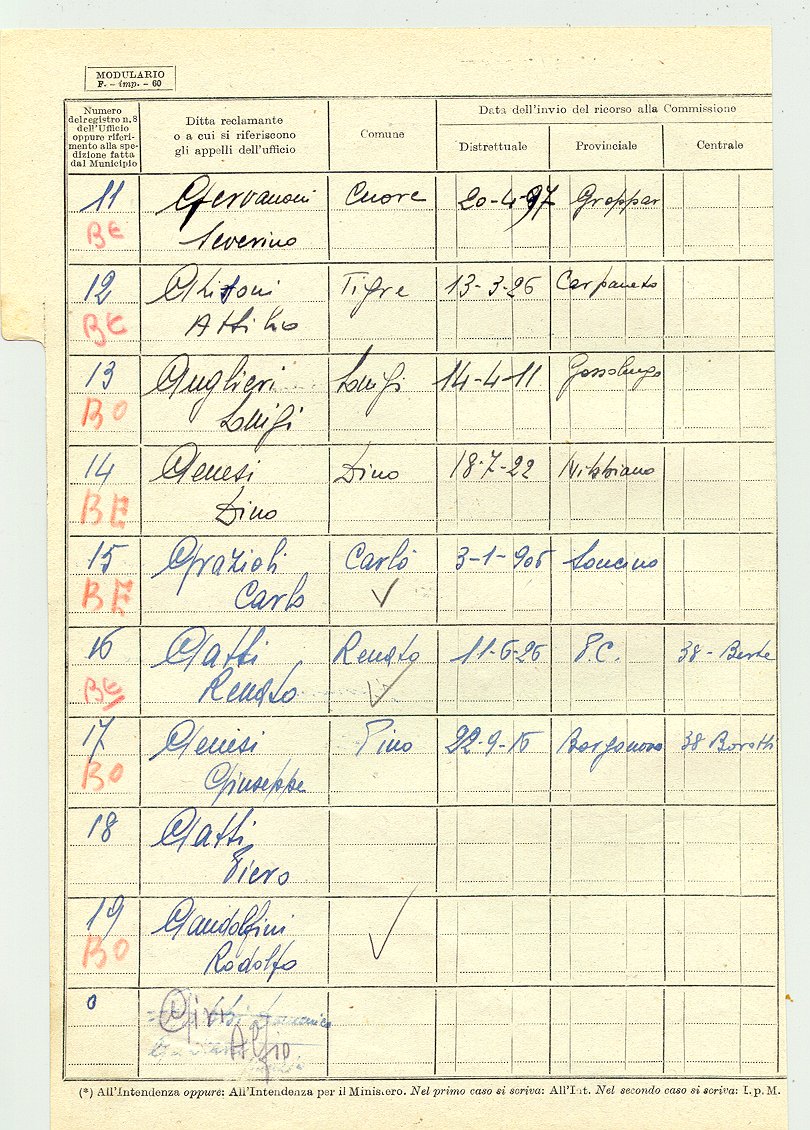 MODULARIO
F. - imp. - 60
Numero del registro n. 8 dell'Ufficio oppure riferimento alla spedizione fatta dal Municipio
Ditta reclamante o a cui si riferiscono gli appelli dell'ufficio
Comune
Data dell'invio del ricorso alla Commissione
Distrettuale Provinciale Centrale
11 Cuore 20-4-97 Groppar
BE Severino
12 Ghitoni Tigre 13-3-26 Carpaneto
BE Attilio
13 Guglieri Luigi 14-4-11 Gossolengo
BO Luigi
14 Genesi Dino 18-7-22 Nibbiano
BE Dino
15 Grazioli Carlo 3-1-905 Soncino
BE Carlo
16 Gatti Renato 11-6-26 P.C. 38 - Berte
BE Renato
17 Genesi Pino 22-9-15 Borgonovo 38 Boratti
BO Giuseppe
18 Gatti
Piero
19 Gandolfini
BO Rodolfo
0
(*) All'Intendenza oppure: All'Intendenza per il Ministero. Nel primo caso si scriva: All'Int. Nel secondo caso si scriva: I. p. M.